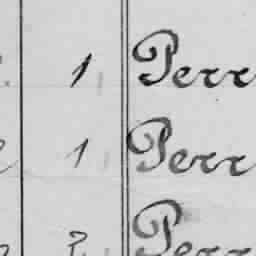 1 Perr
1 Perr
2 Perr